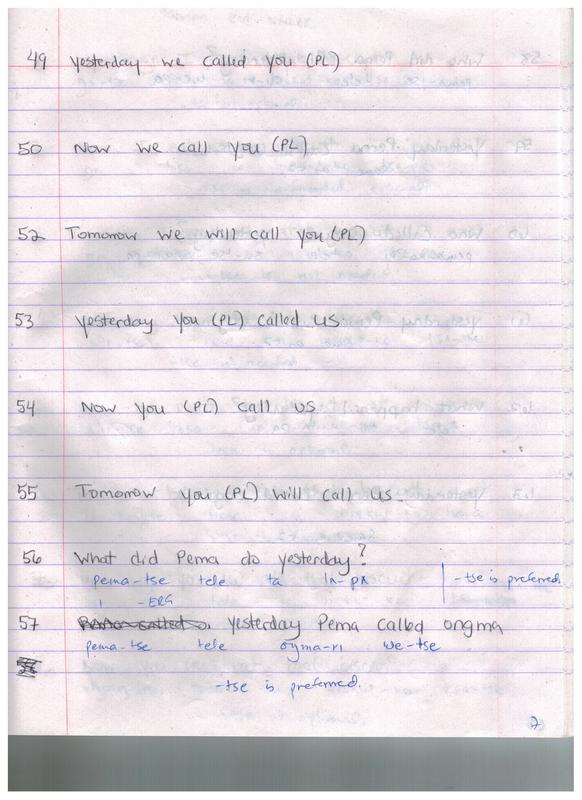 49 Yesterday we called you (PL)
50 Now we call you (PL)
52 Tomorrow we will call you (PL)
53 Yesterday you (PL) called us
54 Now you (PL) call us
55 Tomorrow you (PL) will call us.
56 What did Pema do yesterday?
Pema-tse tele ta | -tse is preferred.
-ERG
57 Yesterday Pema called ongma
pema-tse tele we-tse
-tse is preferred.